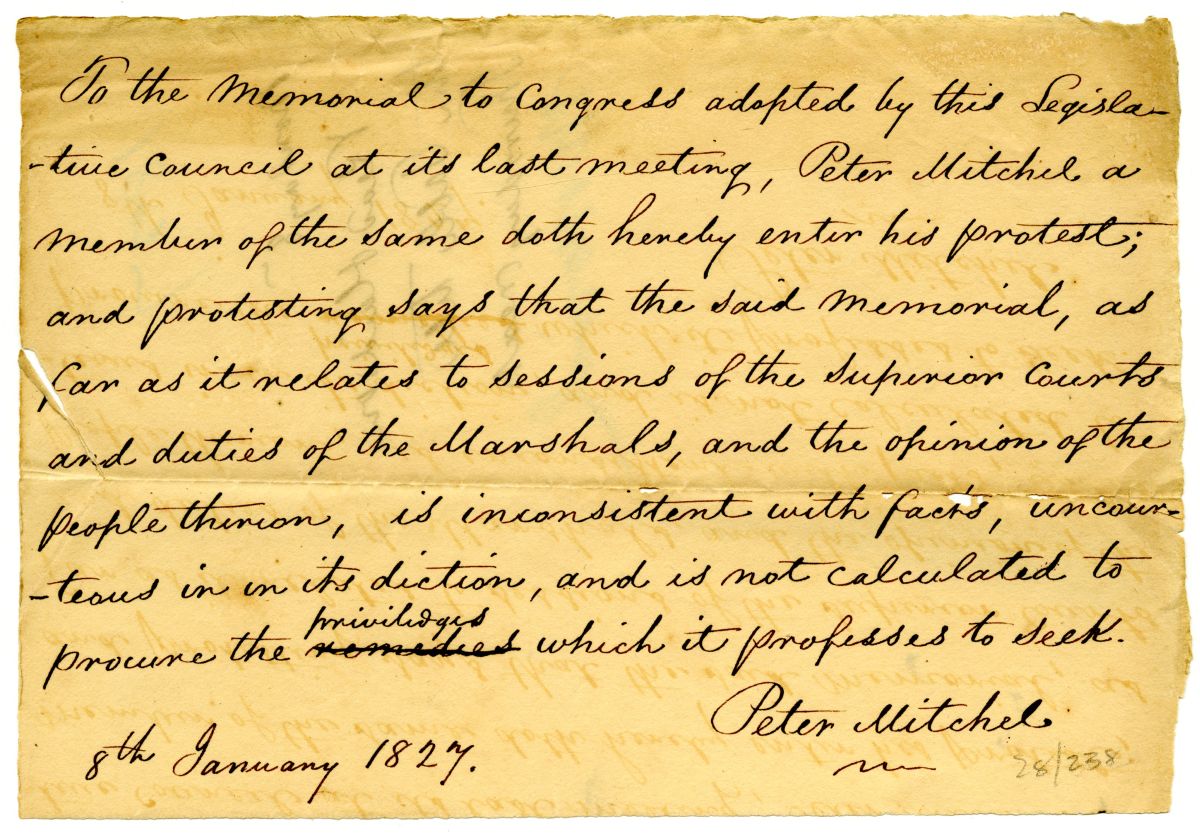 To the Memorial to Congress adopted by this Legisla-
-tive Council at its last meeting, Peter Mitchel a
member of the same doth hereby enter his protest;
and protesting says that the said Memorial, as
far as it relates to sessions of the Superior Courts
and duties of the Marshals, and the opinion of the
people thereon, is inconsistent with facts, uncour-
-teous in in its diction, and is not calculated to
priviledges
procure the remedies which it professes to seek.
Peter Mitchel
8th January 1827.
28/238